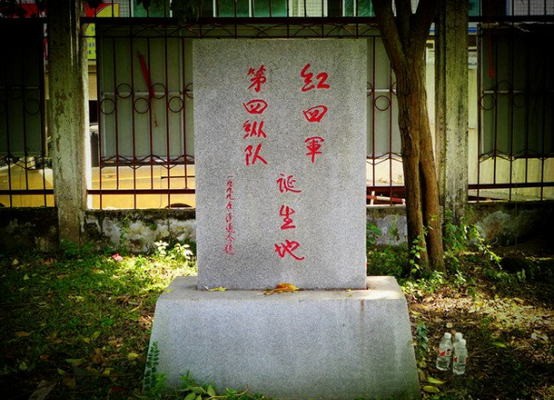 红四軍
第四纵队
诞生地